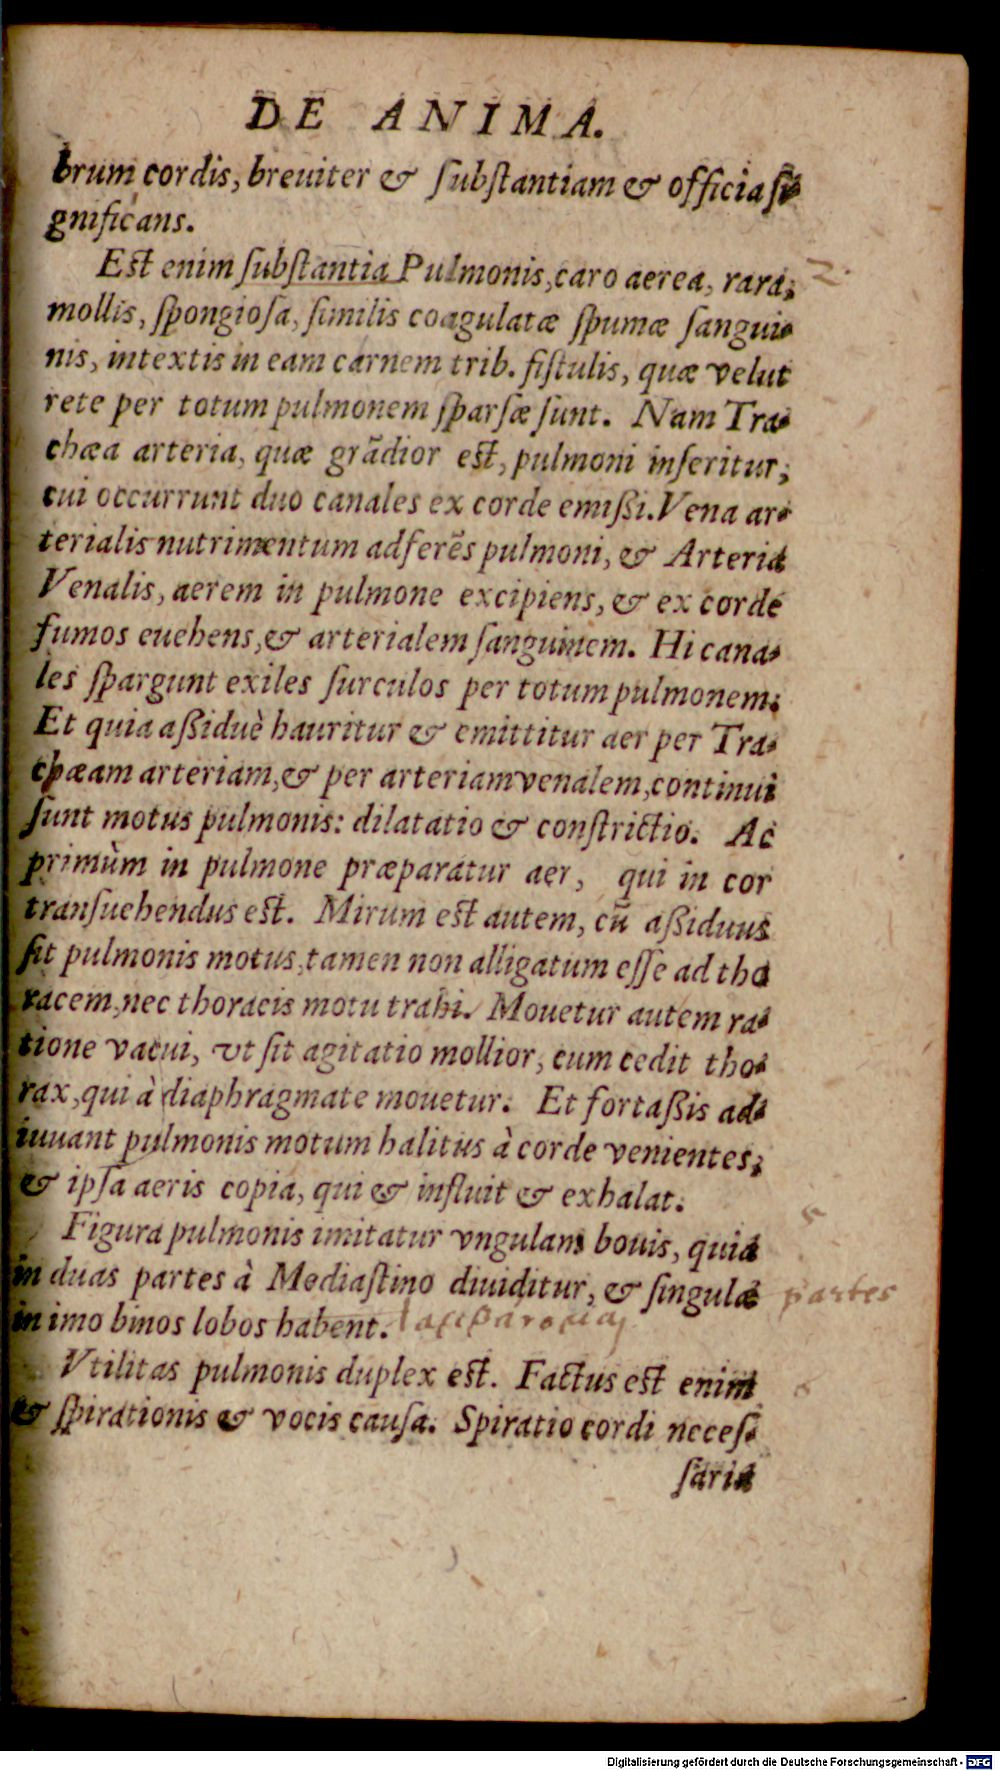 DE ANIMA.
brum cordis, breuiter & ſubſtantiam & officia ſi-
gnificans.
Eſt enim ſubſtantia Pulmonis, caro aerea, rara, 2.
mollis, ſpongioſa, ſimilis coagulatæ ſpumæ ſangui-
nis, intextis in eam carnem trib. fiſtulis, quæ velut
rete per totum pulmonem ſparſæ ſunt. Nam Tra-
chæa arteria, quæ grãdior eſt, pulmoni inſeritur,
cui occurrunt duo canales ex corde emißi. Vena ar-
terialis nutrimentum adferẽs pulmoni, & Arteria
Venalis, aerem in pulmone excipiens, & ex corde
fumos euehens, & arterialem ſanguinem. Hi cana-
les ſpargunt exiles ſurculos per totum pulmonem.
Et quia aßiduè hauritur & emittitur aer per Tra-
chæam arteriam, & per arteriam venalem, continui
ſunt motus pulmonis: dilatatio & conſtrictio. Ac
primùm in pulmone præparatur aer, qui in cor
tranſuehendus eſt. Mirum eſt autem, cũ aßiduus
ſit pulmonis motus, tamen non alligatum eſſe ad tho
racem, nec thoracis motu trahi. Mouetur autem ra-
tione vacui, vt ſit agitatio mollior, cum cedit tho-
rax, qui à diaphragmate mouetur. Et fortaßis ad-
iuuant pulmonis motum halitus à corde venientes,
& ipſa aeris copia, qui & influit & exhalat.
Figura pulmonis imitatur vngulam bouis, quia
in duas partes à Mediaſtino diuiditur, & ſingulæ partes
in imo binos lobos habent.
Vtilitas pulmonis duplex eſt. Factus eſt enim
& ſpirationis & vocis cauſa. Spiratio cordi neceſ-
ſaria
Digitalisierung gefördert durch die Deutsche Forschungsgemeinschaft - DFG